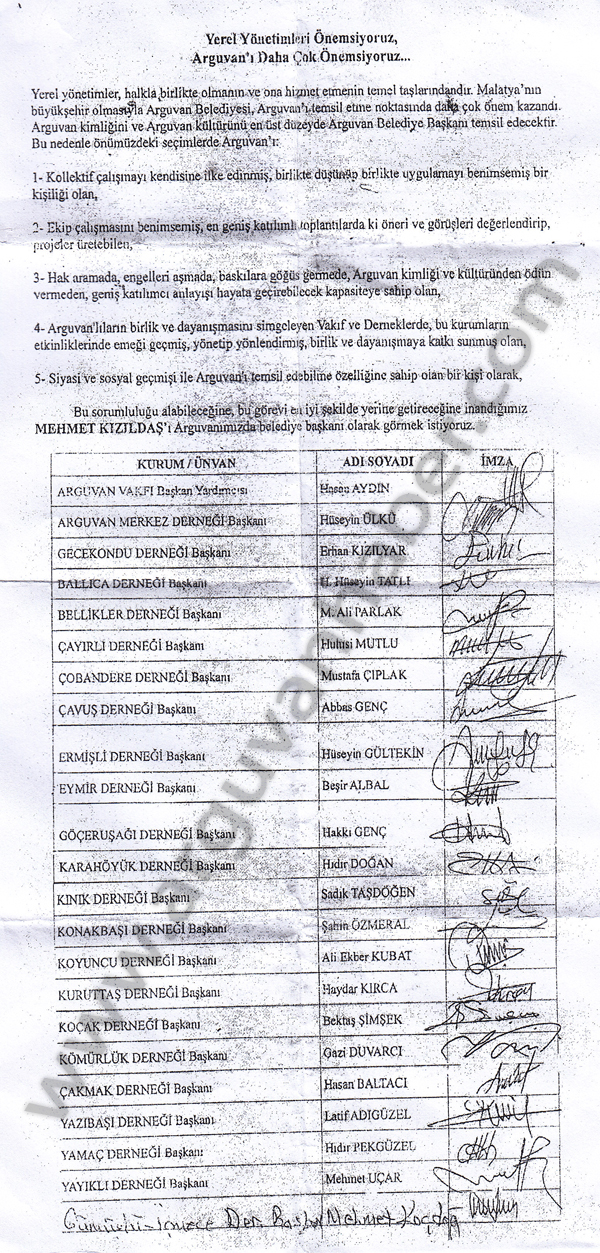 Yerel Yönetimleri Önemsiyoruz,
Arguvan'ı Daha Çok Önemsiyoruz...
Yerel yönetimler, halkla birlikte olmanın ve ona hizmet etmenin temel taşlarındandır. Malatya'nın
büyükşehir olmasıyla Arguvan Belediyesi, Arguvan'ı temsil etme noktasında daha çok önem kazandı.
Arguvan kimliğini ve Arguvan kültürünü en üst düzeyde Arguvan Belediye Başkanı temsil edecektir.
Bu nedenle önümüzdeki seçimlerde Arguvan'ı:
1- Kollektif çalışmayı kendisine ilke edinmiş, birlikte düşünüp birlikte uygulamayı benimsemiş bir
kişiliği olan,
2- Ekip çalışmasını benimsemiş, en geniş katılımlı toplantılarda ki öneri ve görüşleri değerlendirip,
projeler üretebilen,
3- Hak aramada, engelleri aşmada, baskılara göğüs germede, Arguvan kimliği ve kültüründen ödün
vermeden, geniş katılımcı anlayışı hayata geçirebilecek kapasiteye sahip olan,
4- Arguvan'lıların birlik ve dayanışmasını simgeleyen Vakıf ve Derneklerde, bu kurumların
etkinliklerinde emeği geçmiş, yönetip yönlendirmiş, birlik ve dayanışmaya katkı sunmuş olan,
5- Siyasi ve sosyal geçmişi ile Arguvan'ı temsil edebilme özelliğine sahip olan bir kişi olarak,
Bu sorumluluğu alabileceğine, bu görevi en iyi şekilde yerine getireceğine inandığımız
MEHMET KIZILDAŞ'ı Arguvanımızda belediye başkanı olarak görmek istiyoruz.
KURUM / ÜNVAN ADI SOYADI İMZA
ARGUVAN VAKFI Başkan Yardımcısı Hasan AYDIN
ARGUVAN MERKEZ DERNEĞİ Başkanı Hüseyin ÜLKÜ
GECEKONDU DERNEĞİ Başkanı Erhan KIZILYAR
BALLICA DERNEĞİ Başkanı H. Hüseyin TATLI
BELLİKLER DERNEĞİ Başkanı M. Ali PARLAK
ÇAYIRLI DERNEĞİ Başkanı Hulusi MUTLU
ÇOBANDERE DERNEĞİ Başkanı Mustafa ÇIPLAK
ÇAVUŞ DERNEĞİ Başkanı Abbas GENÇ
ERMİŞLİ DERNEĞİ Başkanı Hüseyin GÜLTEKİN
EYMİR DERNEĞİ Başkanı Beşir ALBAL
GÖÇERUŞAĞI DERNEĞİ Başkanı Hakkı GENÇ
KARAHÖYÜK DERNEĞİ Başkanı Hıdır DOĞAN
KINIK DERNEĞİ Başkanı Sadık TAŞDÖĞEN
KONAKBAŞI DERNEĞİ Başkanı Şahin ÖZMERAL
KOYUNCU DERNEĞİ Başkanı Ali Ekber KUBAT
KURUTTAŞ DERNEĞİ Başkanı Haydar KIRCA
KOÇAK DERNEĞİ Başkanı Bektaş ŞİMŞEK
KÖMÜRLÜK DERNEĞİ Başkanı Gazi DUVARCI
ÇAKMAK DERNEĞİ Başkanı Hasan BALTACI
YAZIBAŞI DERNEĞİ Başkanı Latif ADIGÜZEL
YAMAÇ DERNEĞİ Başkanı Hıdır PEKGÜZEL
YAYIKLI DERNEĞİ Başkanı Mehmet UÇAR
Der. Mehmet
www.arguvanhaber.com